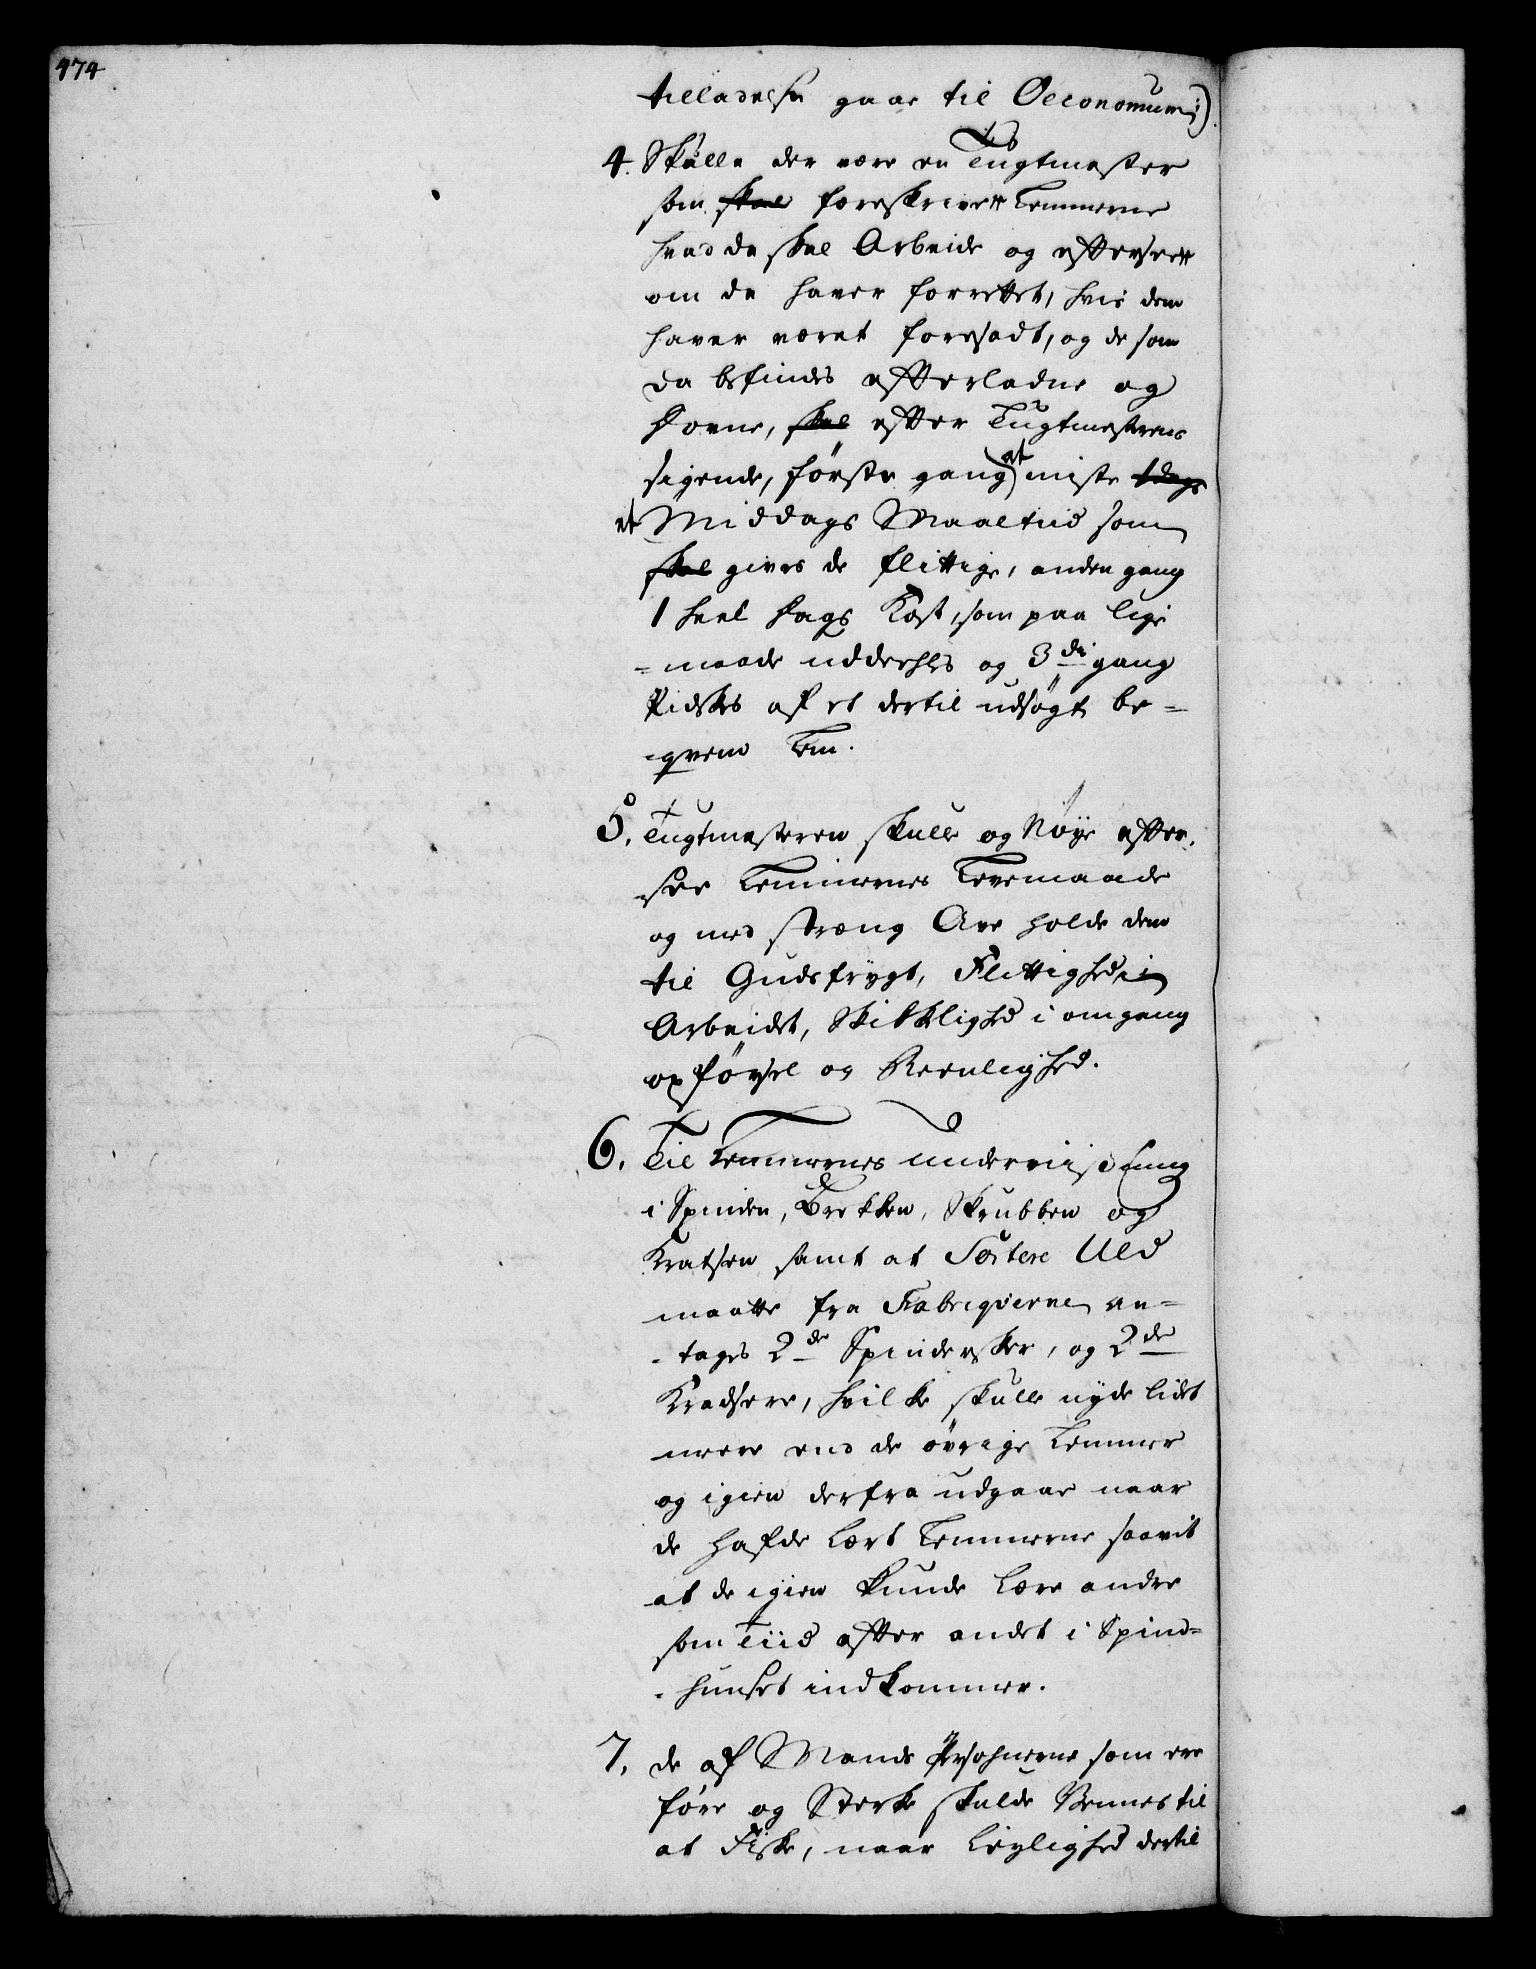 474
tilladelse gaar til Oeconomum)
4. Skulle der være en Tugtmester
som skal foreskriver Lemmerne
hvad de skal Arbeide og efterseer
om de haver forrettet, hvis dem
haver været foresadt, og de som
da befindes efterladne og
dovne, skal efter Tugtmesterens
sigende, første gang at miste 1 dags
et Middags Maaltid som
skal gives de flittige, anden gang
1 heel dags Kost, som paa lige
=maade uddeeles og 3die gang
Pidskes af et dertil udsøgt be=
=qvem Lem.
5. Tugtmesteren skulle og Nøye efter,
see Lemmernes Levemaade
og med streng Ave holde dem
til Gudsfrygt, Flittighed i
Arbeidet, Skikkelighed i omgang
opførsel og Reenlighed.
6. Til Lemmernes underviisning
i Spinden, Brekken, Skrubben og
Kratsen samt at Sortere Uld
maatte fra Fabriqverne an=
=tages 2de Spindersker, og 2de
Kradsere, hvilke skulle nyde lidet
meere end de øvrige Lemmer
og igien derfra udgaae naar
de hafde lært Lemmerne saavit
at de igien kunde lære andre
som Tiid efter andet i Spind=
=huuset indkommer.
7. de af Mands Persohnerne som ere
føre og Sterke skulde Vennes til
at Fiske, naar Leylighed dertil